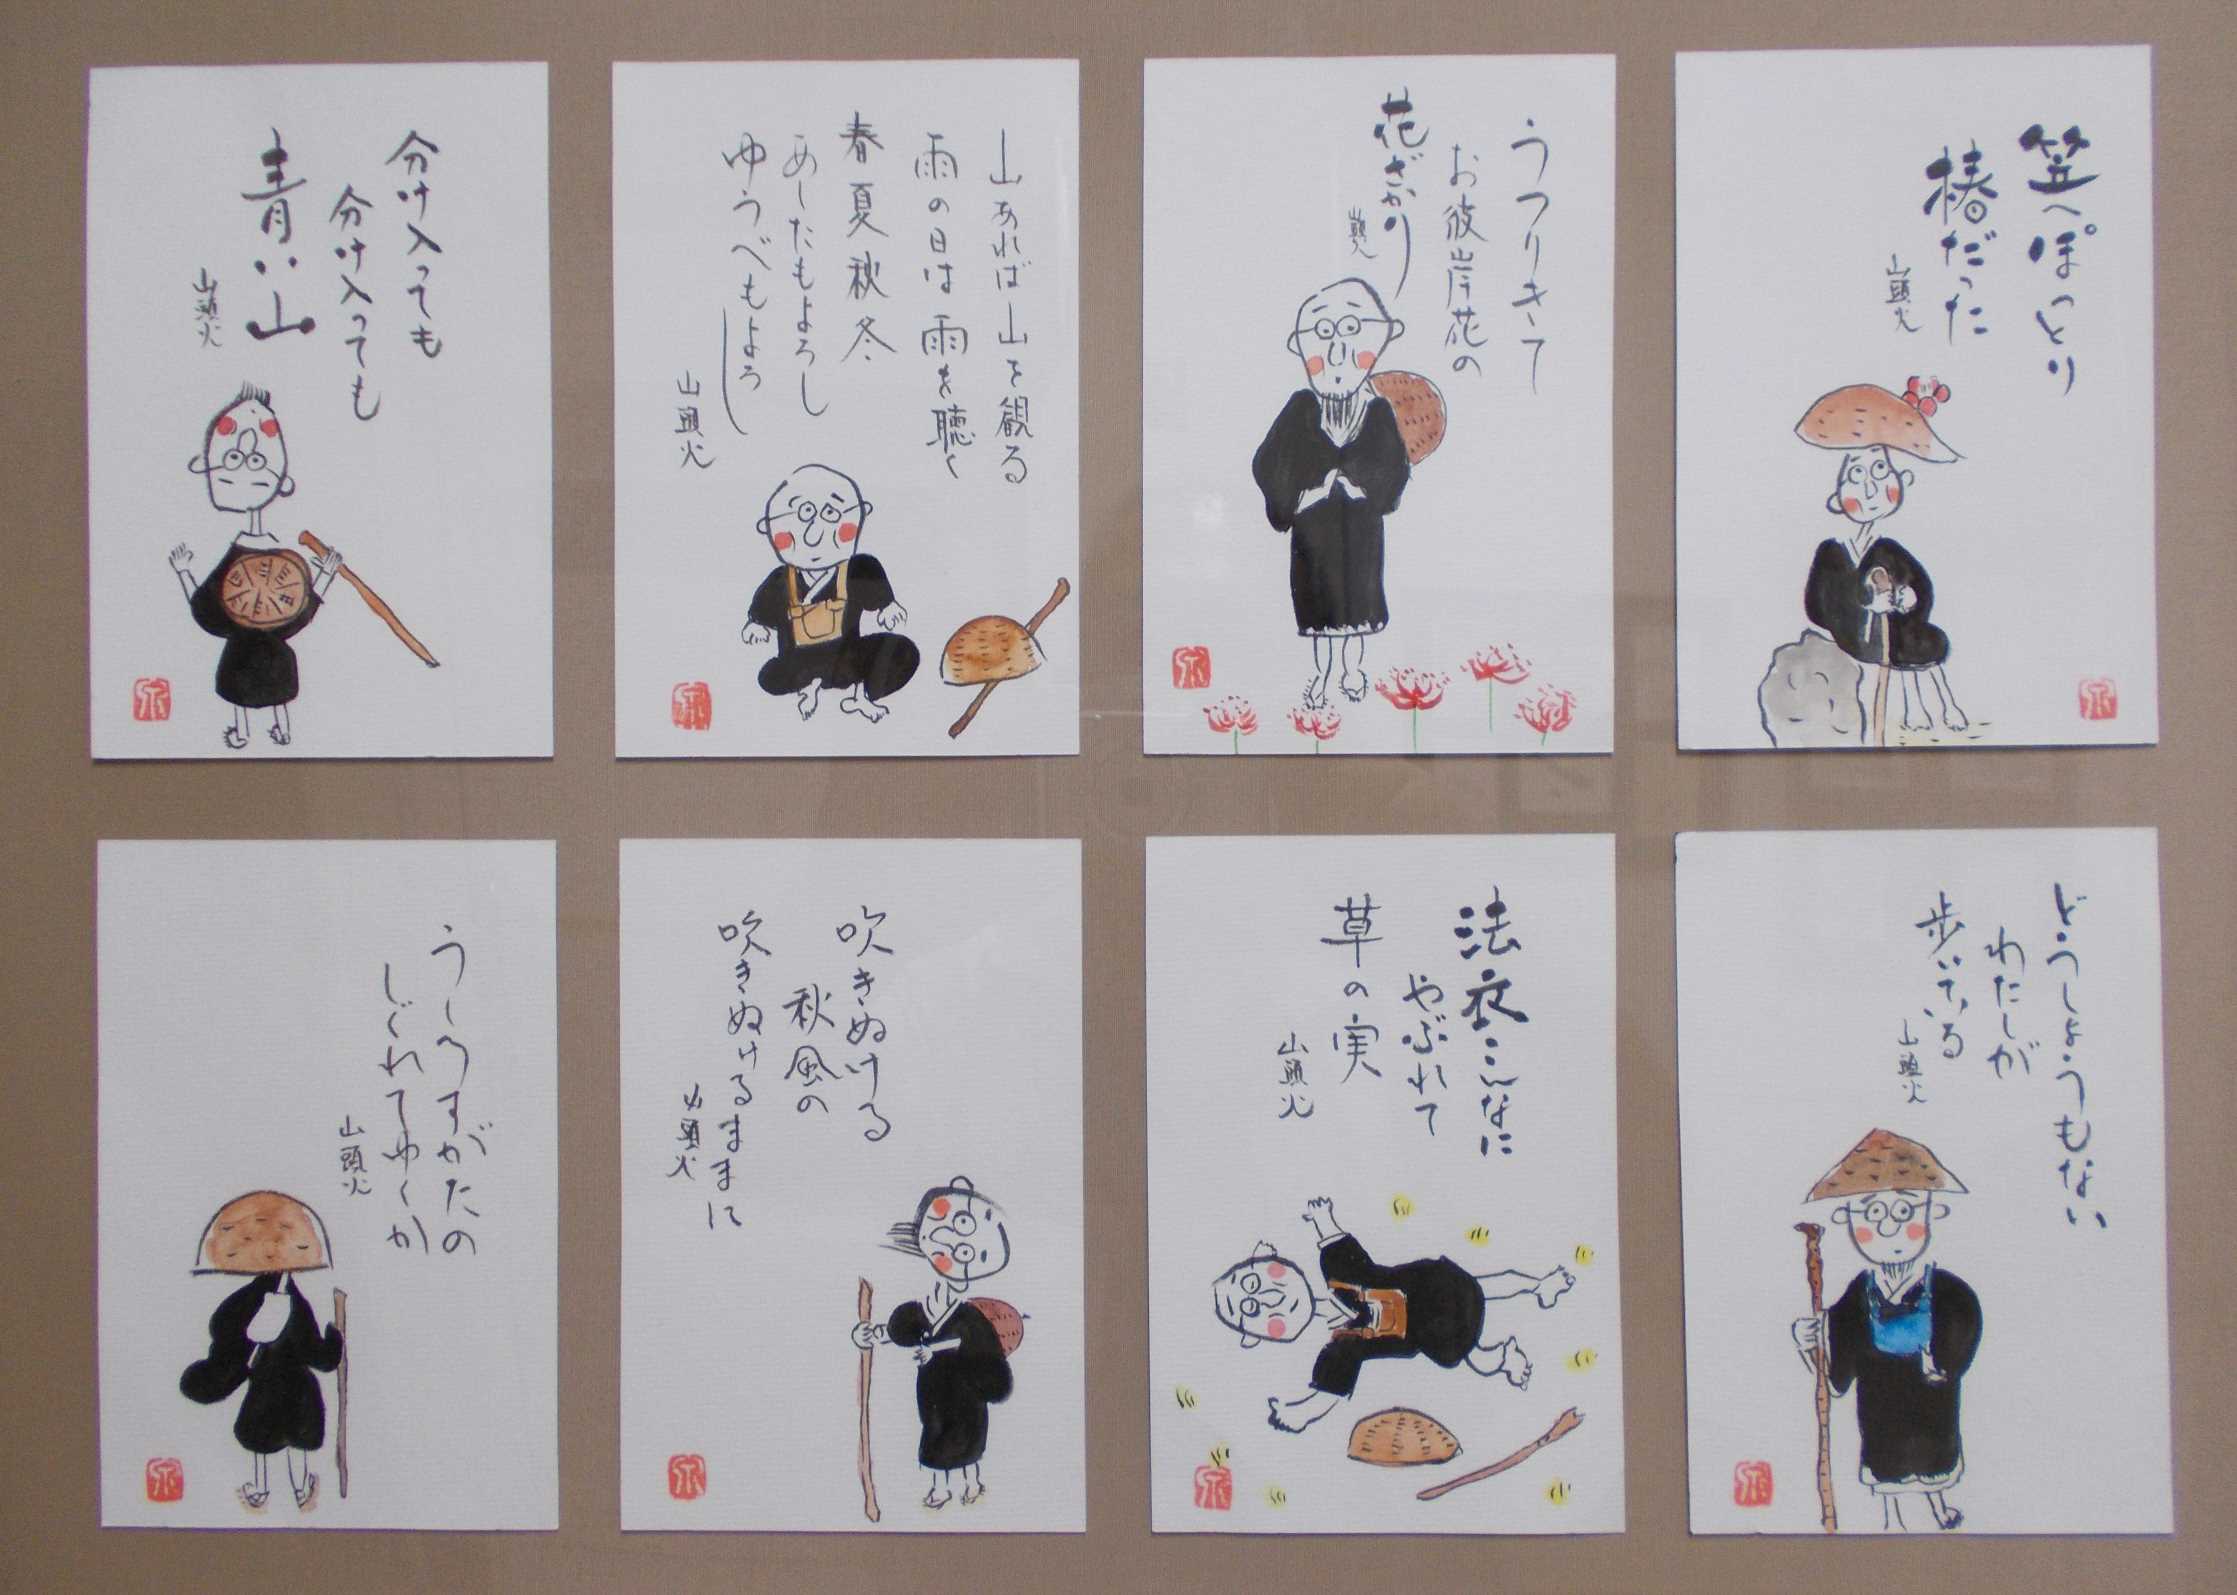 分け入っても
分け入っても
青い山
山頭火
山あれば山を観る
雨の日は雨を聴く
春夏秋冬
あしたもよろし
ゆうべもよろし
山頭火
うつりきて
お彼岸花の
花ざかり
山頭火
笠へぽっとり
椿だった
山頭火
うしろすがたの
しぐれてゆくか
山頭火
吹きぬける
秋風の
吹きぬけるままに
山頭火
法衣こんなに
やぶれて
草の実
山頭火
どうしようもない
わたしが
歩いている
山頭火